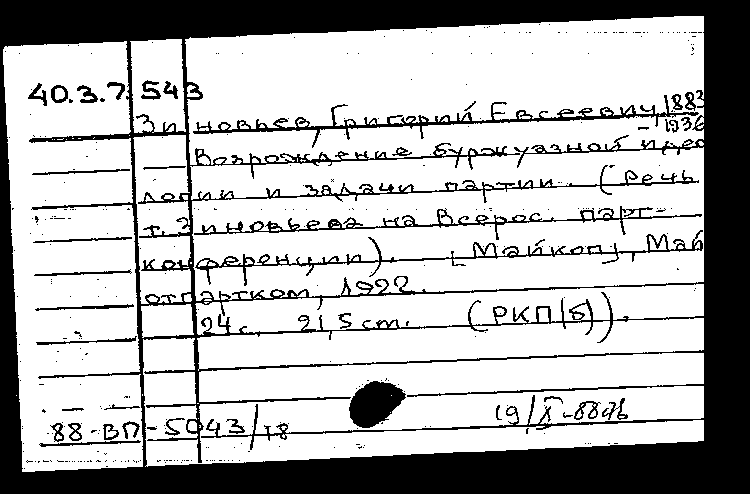 40.3.7.543
Зиновьев, Григорий Евсеевич, 1883
-1936
Возрождение буржуазной идео
логии и задачи партии. (Речь
т. Зиновьева на Всерос. парт-
конференции). [Майкоп], Май
отпартком, 1922.
24 с. 21,5 cm. (РКП(б)).
88-ВП-5043/18
19/X-88